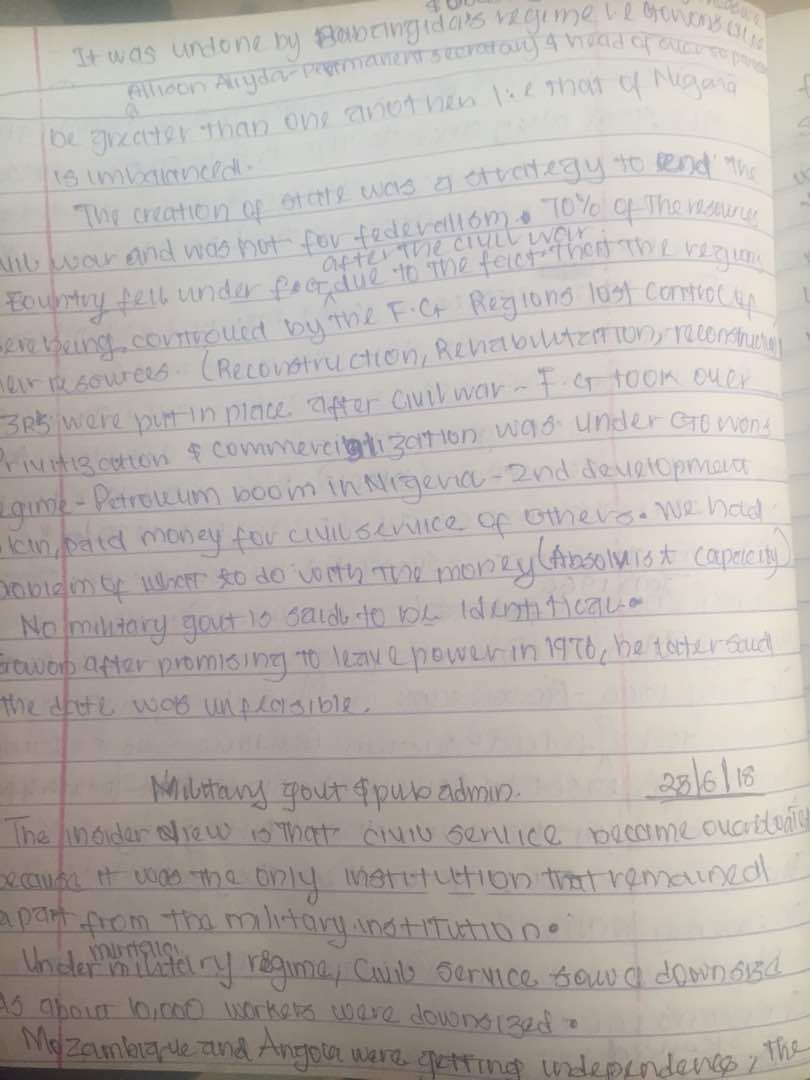 It was undone by Babangida's regime i.e Gowons
Permanent secretary & head of
be greater than one another i.e that of Nigeria
is imbalanced.
The creation of state was a strategy to end the
war and was not for federalism. 70% of the resources
after the civil war
Country fell under due to the fact that the regions
being controlled by the F.G Regions lost control of
resources. (Reconstruction, Rehabilitation, reconstruction
3Rs were put in place after civil war - F.G took over
& commercialization was under Gowons
egime - Petroleum boom in Nigeria - 2nd development
paid money for civil service of others. We had
oblem of what to do with the money (Absolutist capacity)
No military govt is said to be identitical.
Gowon after promising to leave power in 1976, he later said
the date was unfeasible.
Military govt & pub admin. 28/6/18
The insider view is that civil service became
because it was the only institution that remained
apart from the military institution.
Under military regime, civil service saw a downsize
As about 10,000 workers were downsized.
Mozambique and Angola were getting independence, the